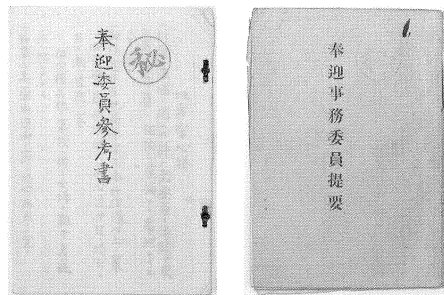 ㊙
奉迎委員參考書
奉迎事務委員提要